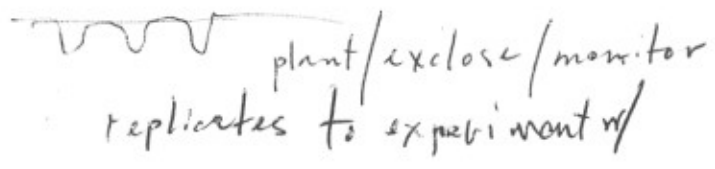 plant/exclose/monitor
replicates to experiment w/